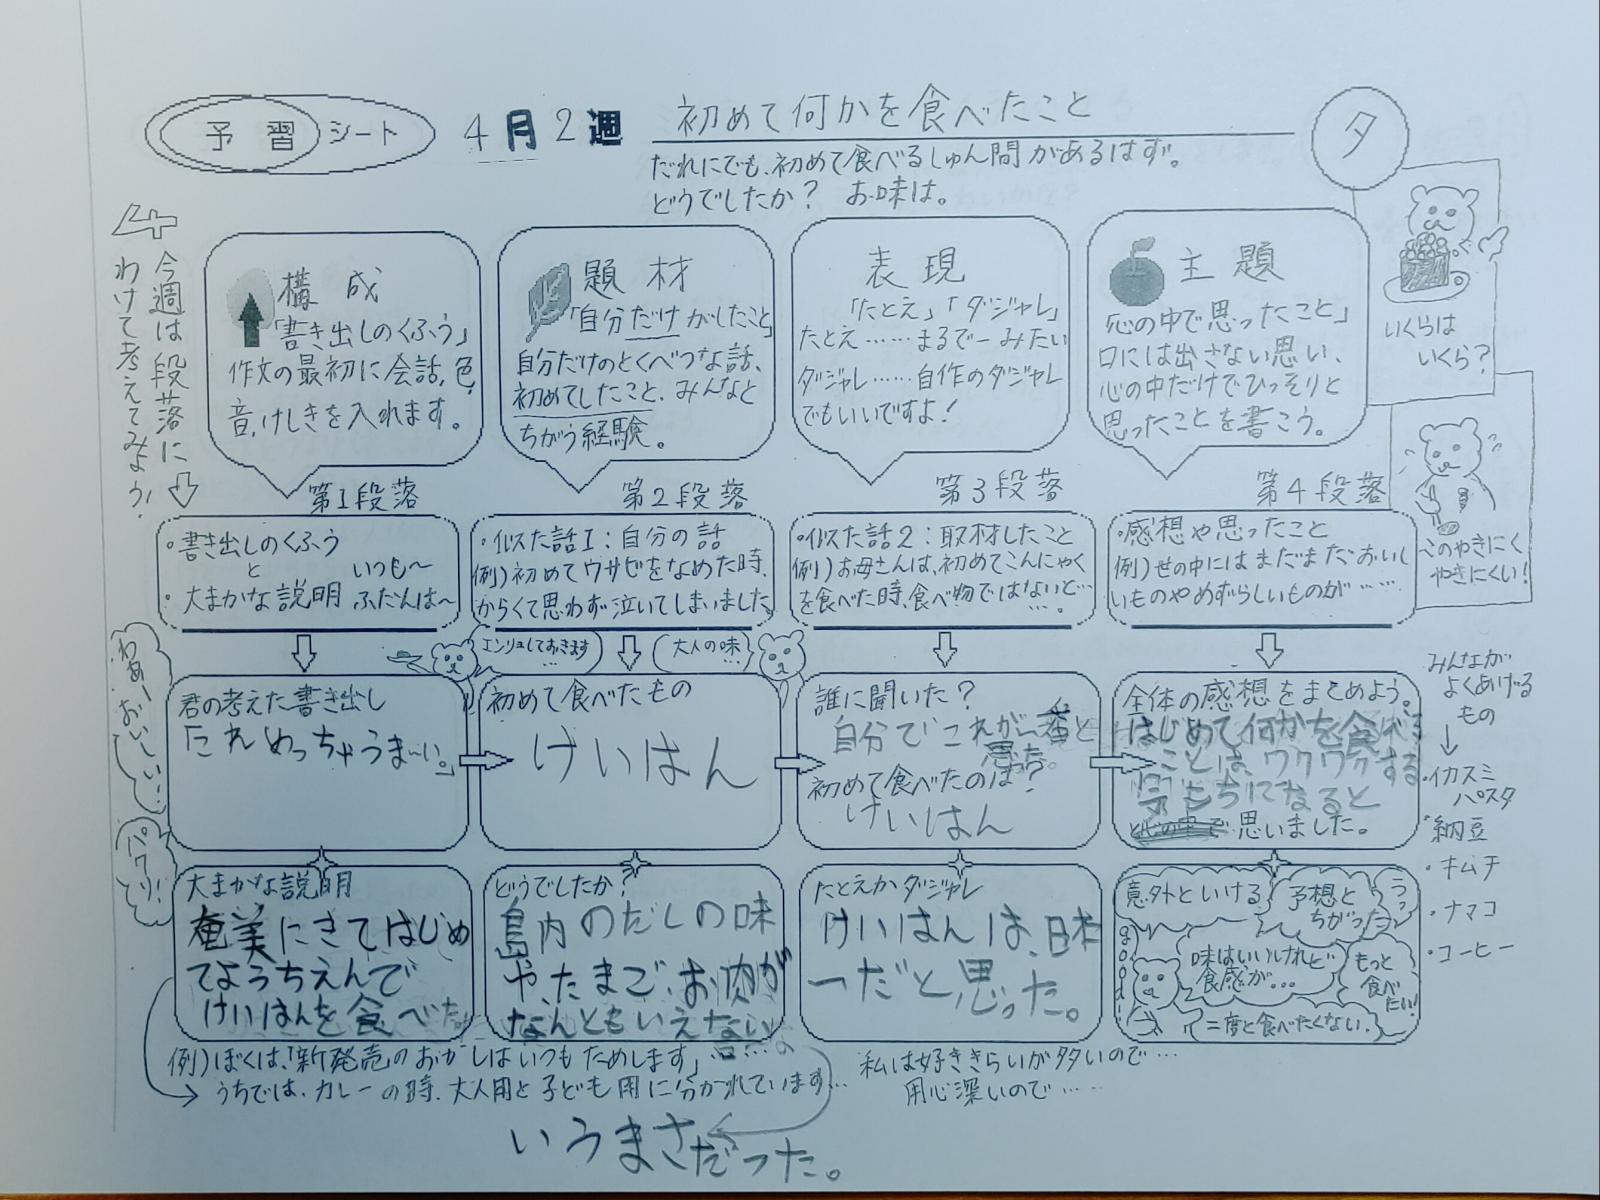 予習シート
4月2週
初めて何かを食べたこと
だれにでも、初めて食べるしゅん間があるはず。
どうでしたか? お味は。
タ
今週は段落に
わけて考えてみよう!
構成
「書き出しのくふう」
作文の最初に会話、色、
音、けしきを入れます。
題材
「自分だけがしたこと」
自分だけのとくべつな話、
初めてしたこと、みんなと
ちがう経験。
表現
「たとえ」「ダジャレ」
たとえ……まるで〜みたい
ダジャレ……自作のダジャレ
でもいいですよ!
主題
「心の中で思ったこと」
口には出さない思い、
心の中だけでひっそりと
思ったことを書こう。
いくらは
いくら?
このやきにく
やきにくい!
第1段落
・書き出しのくふう
と
・大まかな説明
いつも〜
ふだんは〜
第2段落
・似た話1:自分の話
例)初めてワサビをなめた時、
からくて思わず泣いてしまいました。
第3段落
・似た話2:取材したこと
例)お母さんは、初めてこんにゃく
を食べた時、食べ物ではないと…
…。
第4段落
・感想や思ったこと
例)世の中にはまだまだおいし
いものやめずらしいものが……
わあーおいしい…
パクリ!
エンリョしておきます
…
大人の味
…
君の考えた書き出し
「これめっちゃうま〜い。」
初めて食べたもの
けいはん
誰に聞いた?
自分でこれが一番と
思った。
初めて食べたのは?
けいはん
全体の感想をまとめよう。
はじめて何かを食べる
ことは、ワクワクする
気もちになると
思いました。
みんなが
よくあげる
もの
↓
・イカスミ
パスタ
・納豆
・キムチ
・ナマコ
・コーヒー
大まかな説明
奄美にきてはじめ
てようちえんで
けいはんを食べた。
どうでしたか?
島内のだしの味
や、たまご、お肉が
なんともいえない
いうまさだった。
たとえかダジャレ
けいはんは、日本
一だと思った。
意外といける
予想と
ちがった
うっ
味はいいけれど
食感が…
もっと
食べ
たい!
二度と食べたくない。
例)ぼくは、「新発売のおかしはいつもためします」
うちでは、カレーの時、大人用と子ども用に分かれています…
私は好ききらいが多いので…
用心深いので……